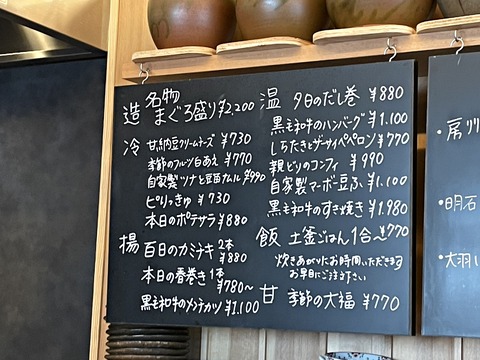 造 名物
まぐろ盛り ¥2,200
冷 甘納豆クリームチーズ ¥730
季節のフルーツ白あえ ¥770
自家製ツナと豆苗ナムル ¥990
ピりっきゅ ¥730
本日のポテサラ ¥880
揚 百日のカミナキ 2本 ¥880
本日の春巻き 1本 ¥780〜
黒毛和牛のメンチカツ ¥1,100
温 夕日のだし巻 ¥880
黒毛和牛のハンバーグ ¥1,100
しらたきとザーサイペペロン ¥770
親どりのコンフィ ¥990
自家製マーボー豆ふ ¥1,100
黒毛和牛のすき焼き ¥1,980
飯 土釜ごはん 1合〜 ¥770
炊きあがりにお時間いただきます
お早目にご注文下さい
甘 季節の大福 ¥770
・明石
・大羽い